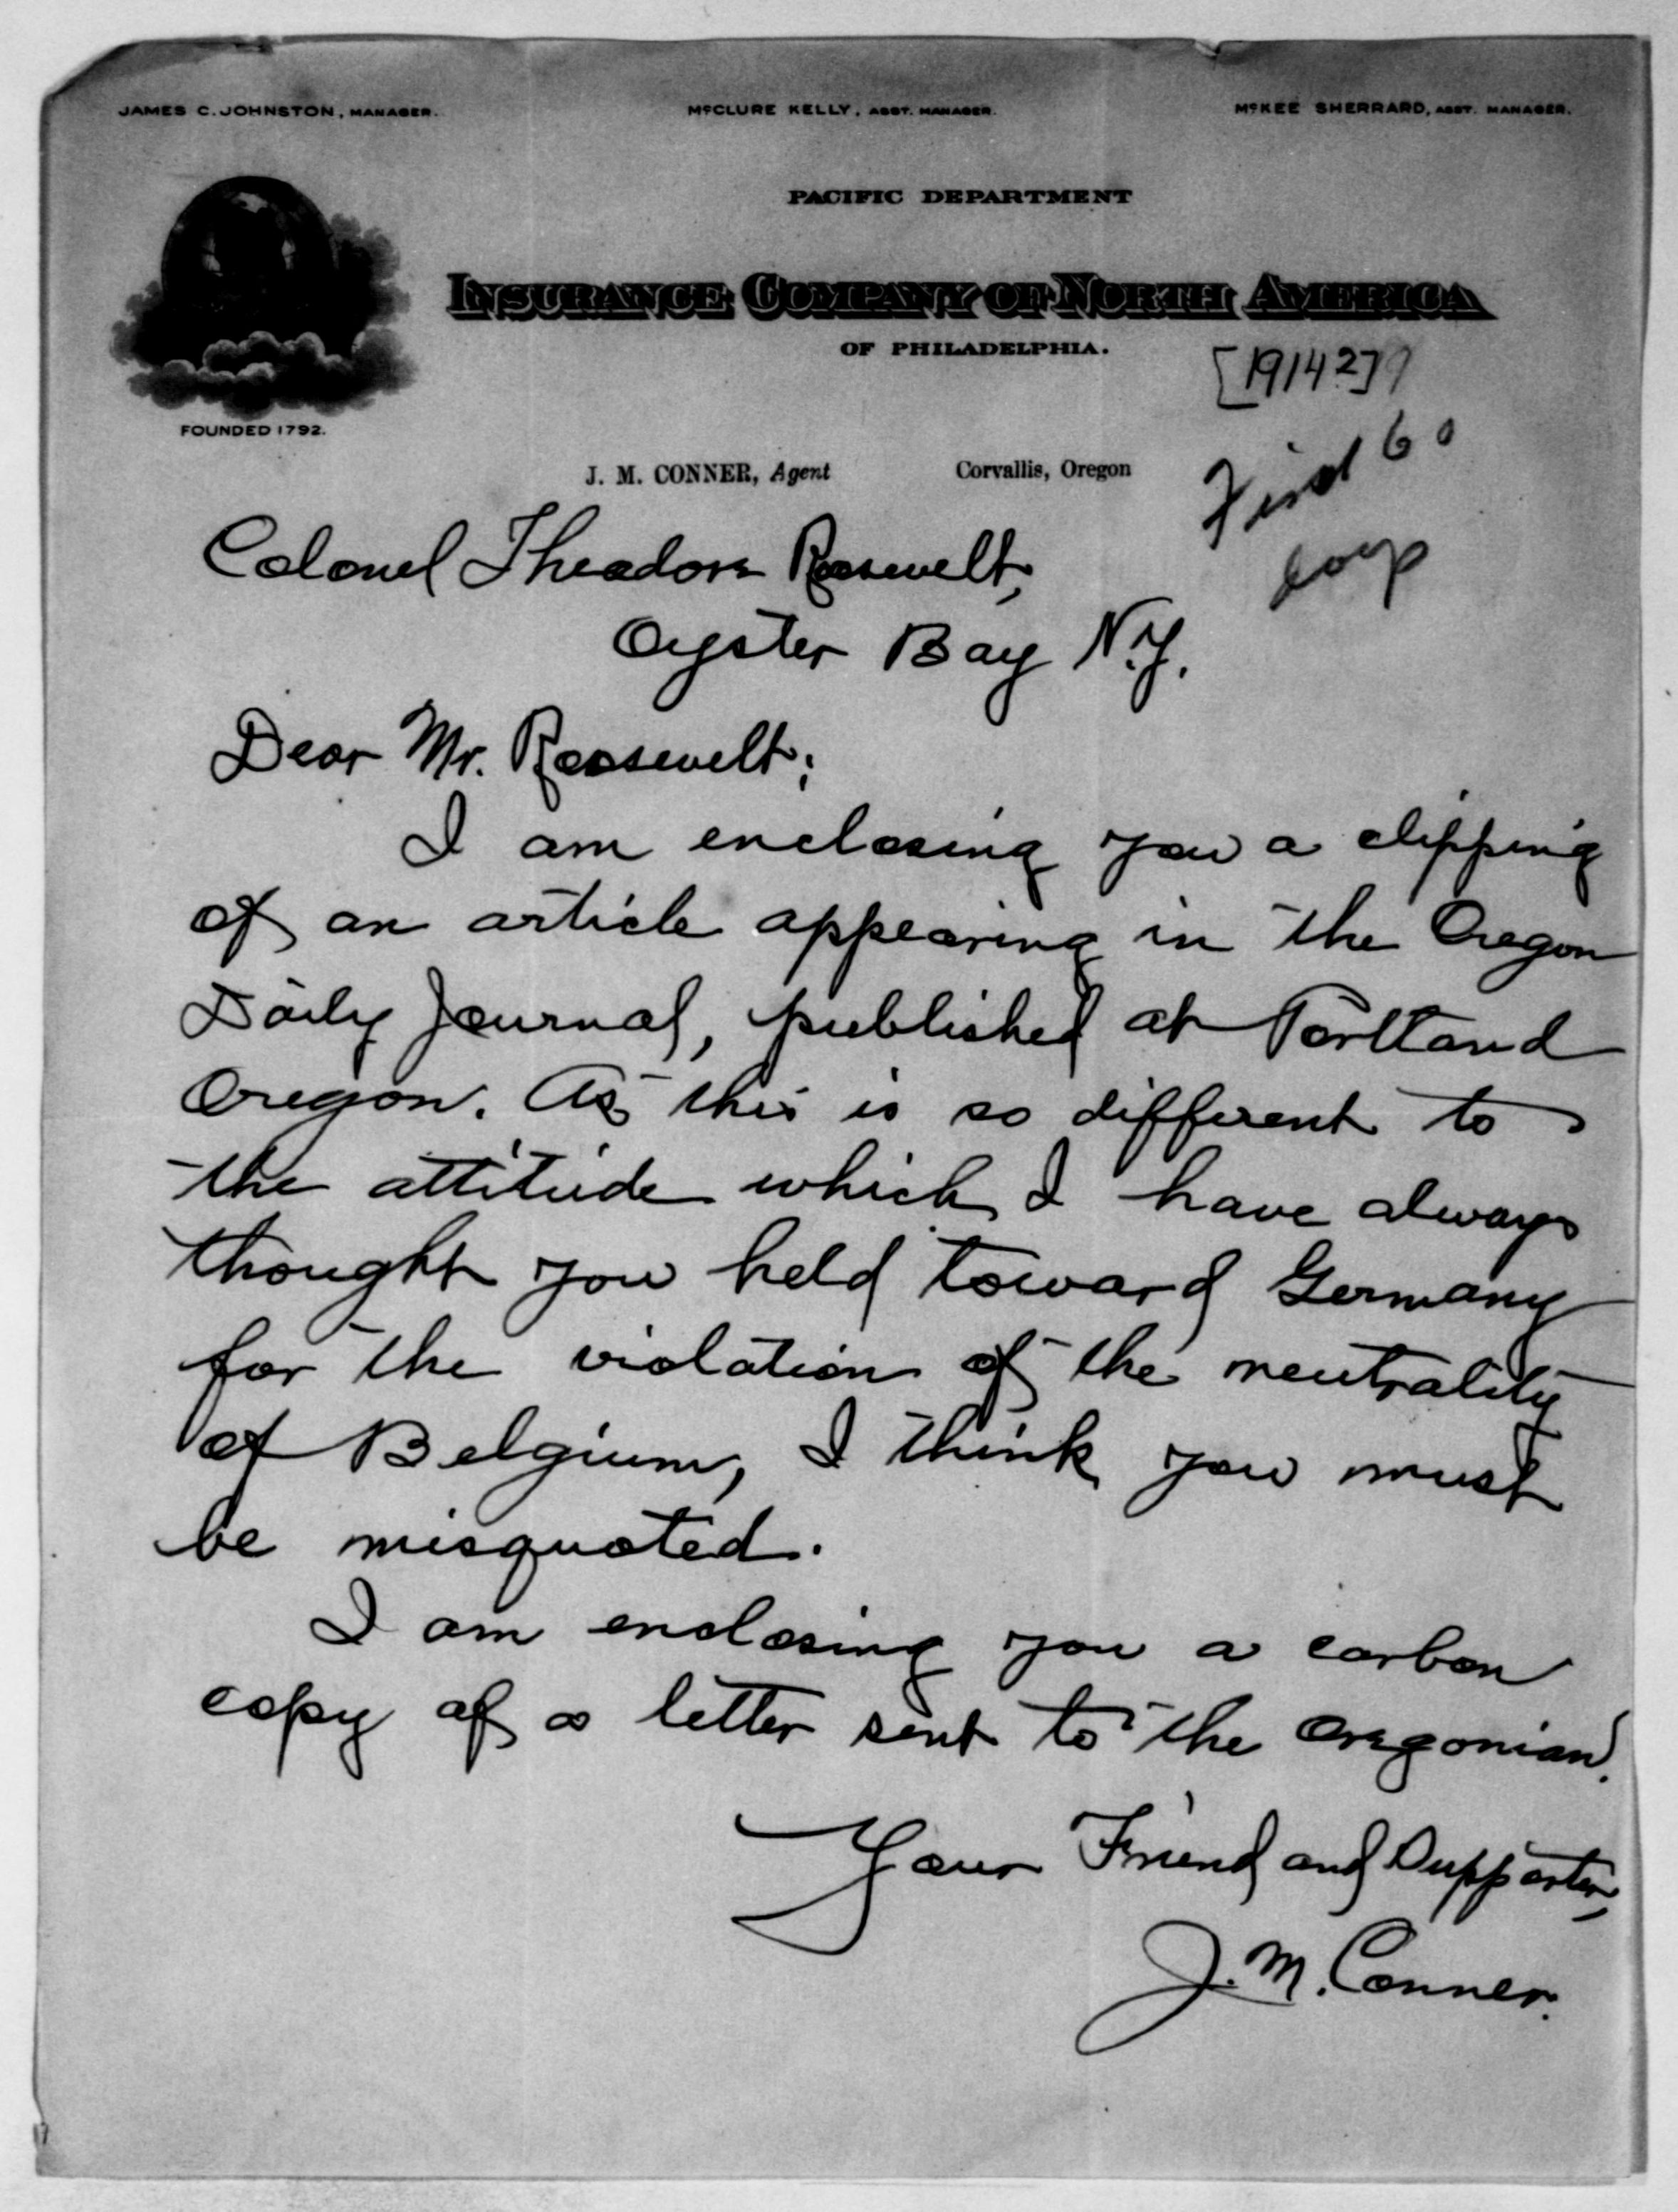 JAMES C. JOHNSTON, MANAGER. McCLURE KELLY, ASST. MANAGER. McKEE SHERRARD, ASST. MANAGER.
PACIFIC DEPARTMENT
INSURANCE COMPANY OF NORTH AMERICA
OF PHILADELPHIA.
[1914?]
FOUNDED 1792.
J. M. CONNER, Agent Corvallis, Oregon
Colonel Theodore Roosevelt,
Oyster Bay N.Y.
Dear Mr. Roosevelt;
I am enclosing you a clipping
of an article appearing in the Oregon
Daily Journal, published at Portland
Oregon. As this is so different to
the attitude which I have always
thought you held toward Germany
for the violation of the neutrality
of Belgium, I think you must
be misquoted.
I am enclosing you a carbon
copy of a letter sent to the Oregonian.
Your Friend and Supporter,
J. M. Conner.